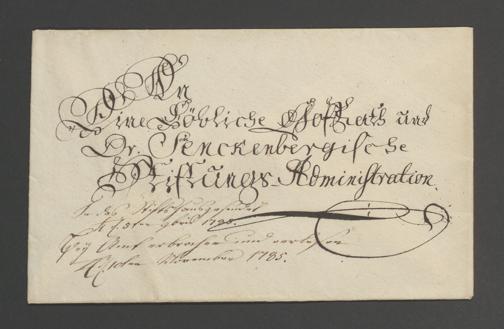 An
Eine Löbliche Hofrath und
Dr. Senckenbergische
Stiftungs-Administration.
In das Stiftshaus gesendet
1785.
Bey Amt erbrochen und verlesen
November 1785.